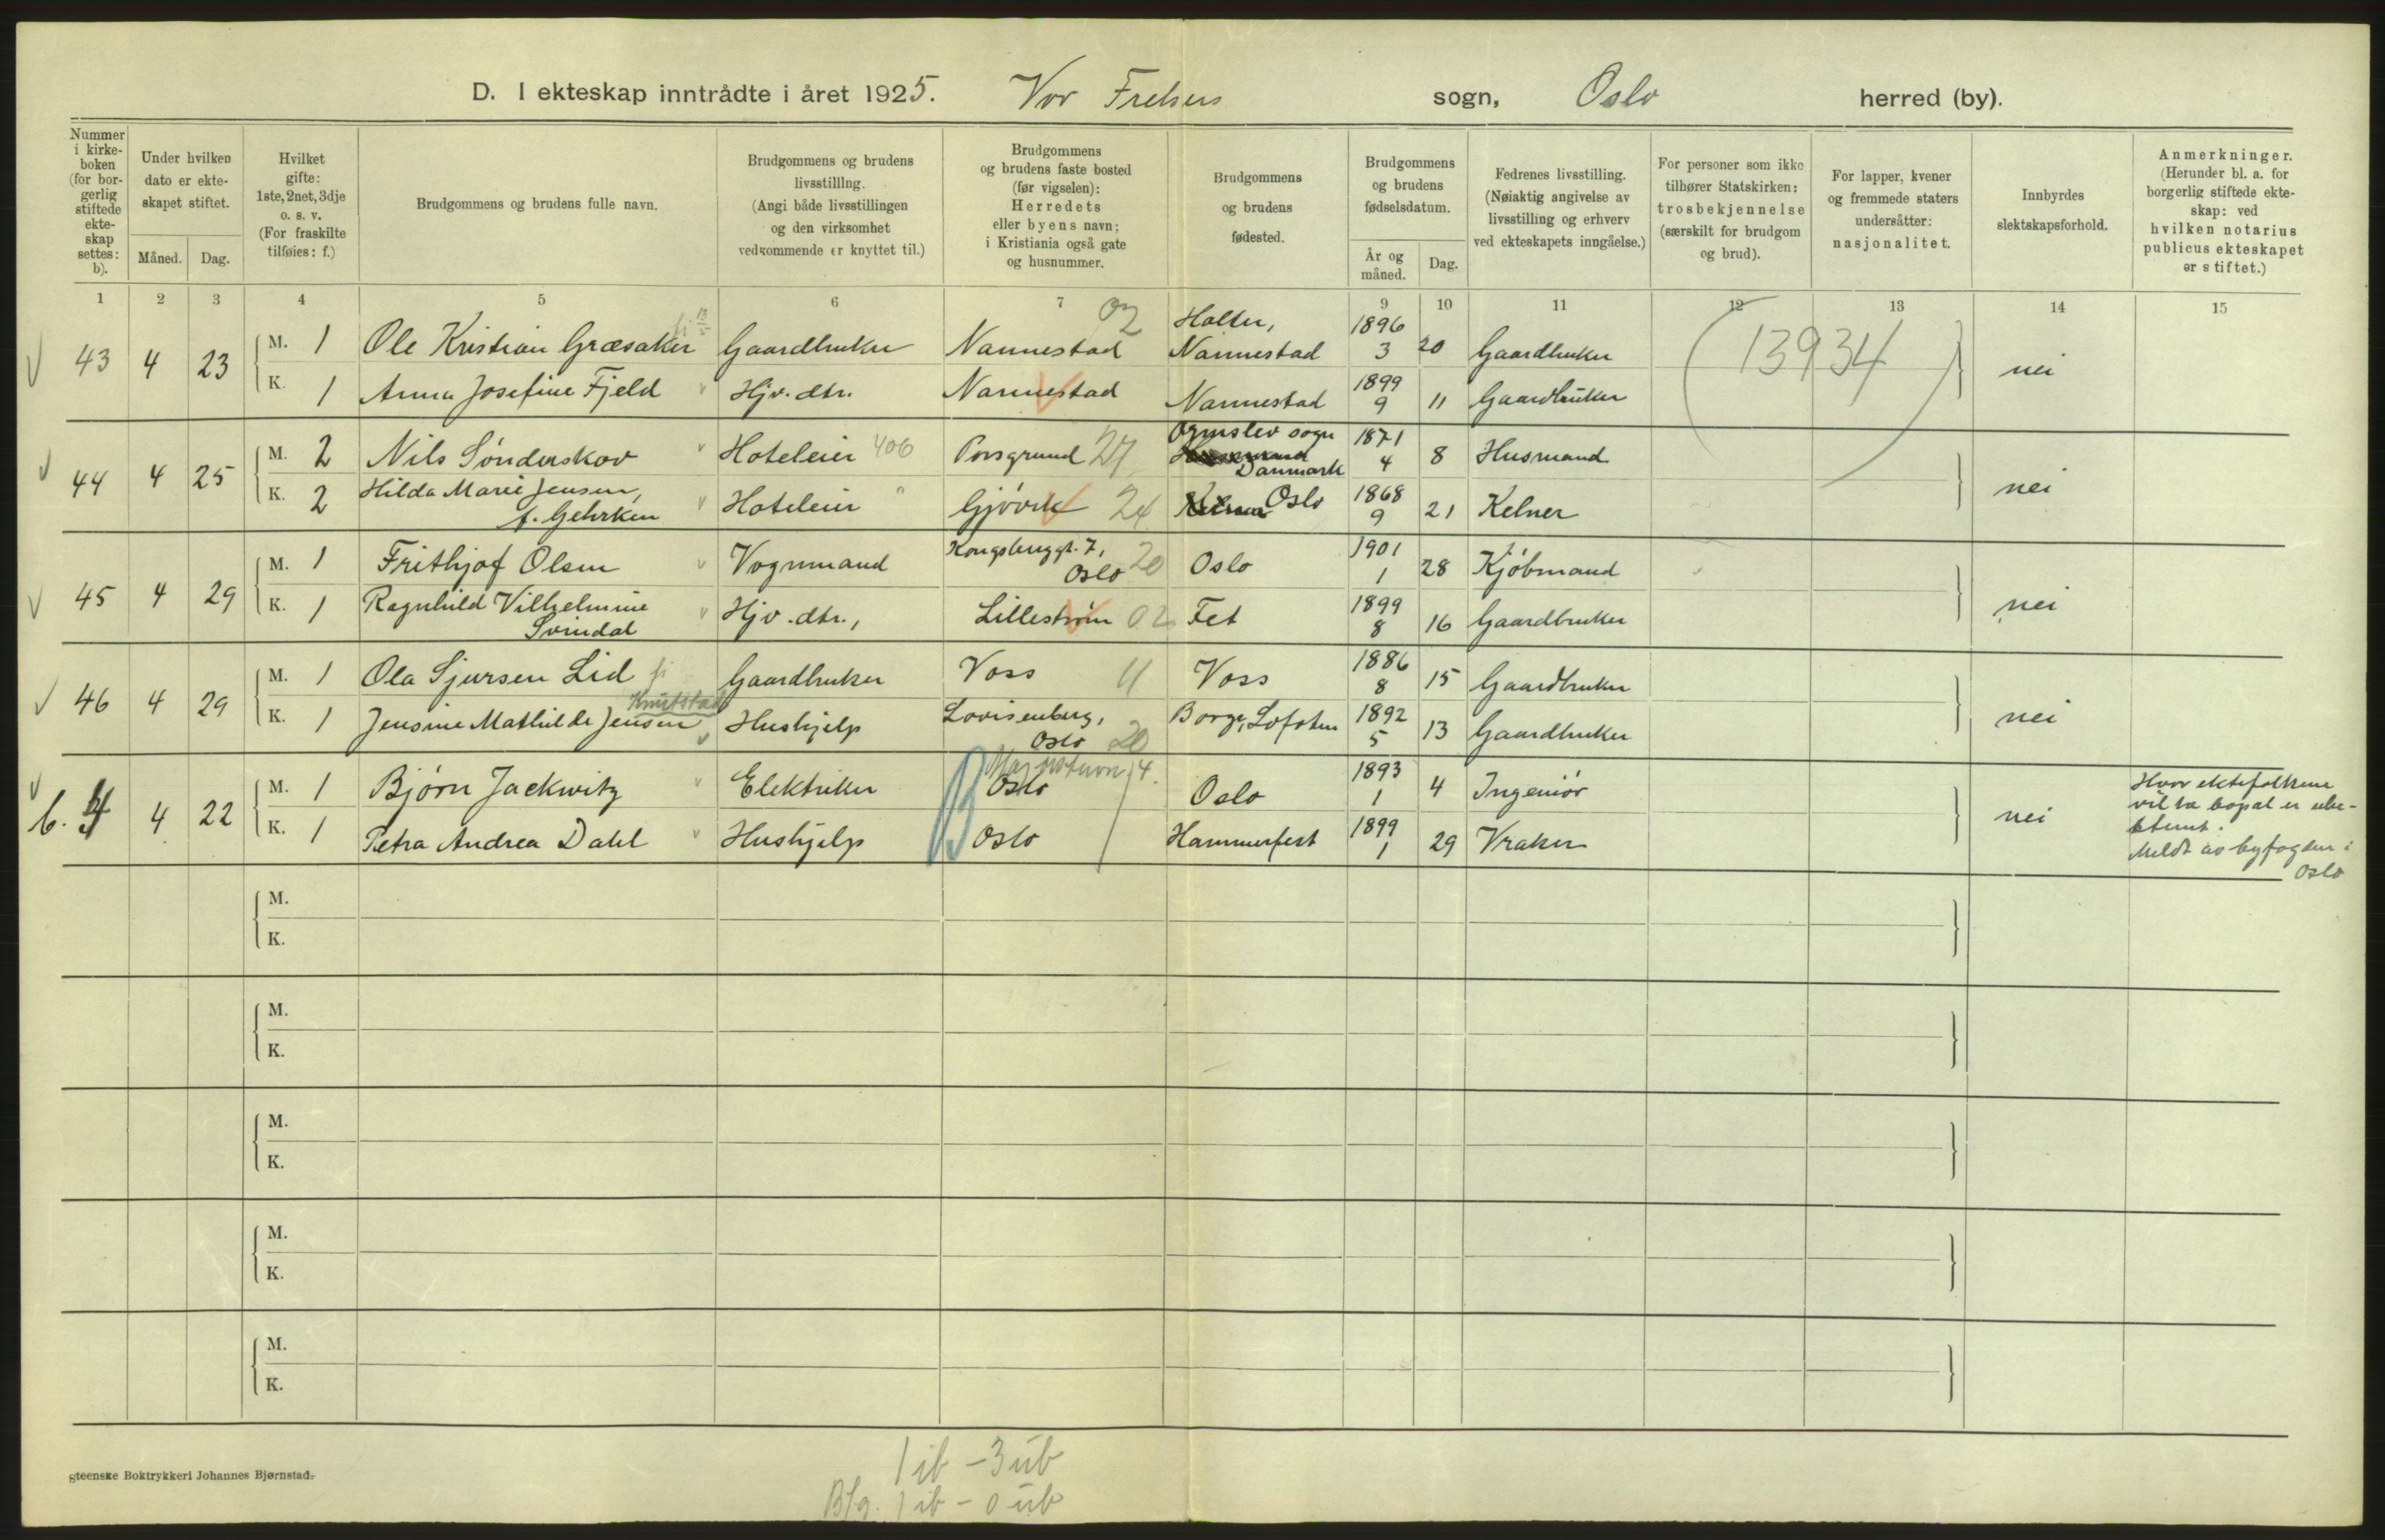 D. I ekteskap inntrådte i året 1925. Vor Frelsers sogn, Oslo herred (by).
Nummer i kirke- boken (for bor- gerlig stiftede ekte- skap settes: b).
Under hvilken dato er ekte- skapet stiftet.
Måned. Dag.
Hvilket gifte: 1ste, 2net, 3dje o. s. v. (For fraskilte tilføies: f.)
Brudgommens og brudens fulle navn.
Brudgommens og brudens livsstilling. (Angi både livsstillingen og den virksomhet vedkommende er knyttet til.)
Brudgommens og brudens faste bosted (før vigselen): Herredets eller byens navn; i Kristiania også gate og husnummer.
Brudgommens og brudens fødested.
Brudgommens og brudens fødselsdatum.
År og måned. Dag.
Fedrenes livsstilling. (Nøiaktig angivelse av livsstilling og erhverv ved ekteskapets inngåelse.)
For personer som ikke tilhører Statskirken: trosbekjennelse (særskilt for brudgom og brud).
For lapper, kvener og fremmede staters undersåtter: nasjonalitet.
Innbyrdes slektskapsforhold.
Anmerkninger. (Herunder bl. a. for borgerlig stiftede ekte- skap: ved hvilken notarius publicus ekteskapet er stiftet.)
1 2 3 4 5 6 7 8 9 10 11 12 13 14 15
43 4 23 M. 1 Ole Kristian Græsaker Gaardbruker Nannestad 02 Holter, Nannestad 1896 3 20 Gaardbruker (13934) nei
K. 1 Anna Josefine Fjeld Hjv. dtr. Nannestad Nannestad 1899 9 11 Gaardbruker
44 4 25 M. 2 Nils Sönderskov Hoteleier 406 Porsgrund 27 sogn Danmark 1871 4 8 Husmand nei
K. 2 Hilda Marie Jensen, f. Gehrken Hoteleier " Gjövik 24 Oslo 1868 9 21 Kelner
45 4 29 M. 1 Frithjof Olsen Vognmand Kongsberggt. 7, Oslo 20 Oslo 1901 1 28 Kjöbmand nei
K. 1 Ragnhild Vilhelmine Svindal Hjv. dtr., Lilleström 02 Fet 1899 8 16 Gaardbruker
46 4 29 M. 1 Ola Sjursen Lid Gaardbruker Voss 11 Voss 1886 8 15 Gaardbruker nei
K. 1 Jensine Mathilde Jensen Knutstad Hushjelp Lovisenberg, Oslo 20 Borge, Lofoten 1892 5 13 Gaardbruker
b. 4 4 22 M. 1 Bjørn Jackwitz Elektriker Oslo Oslo 1893 1 4 Ingeniör nei Hvor ektefolkene
K. 1 Petra Andrea Dahl Hushjelp Oslo Hammerfest 1899 1 29 Vraker
vil ta bopæl er ube-
stemt.
Meldt av byfogden i
Oslo
M.
K.
M.
K.
M.
K.
M.
K.
M.
K.
Steenske Boktrykkeri Johannes Bjørnstad.
1 ib - 3 ub
Bfg. 1 ib - 0 ub